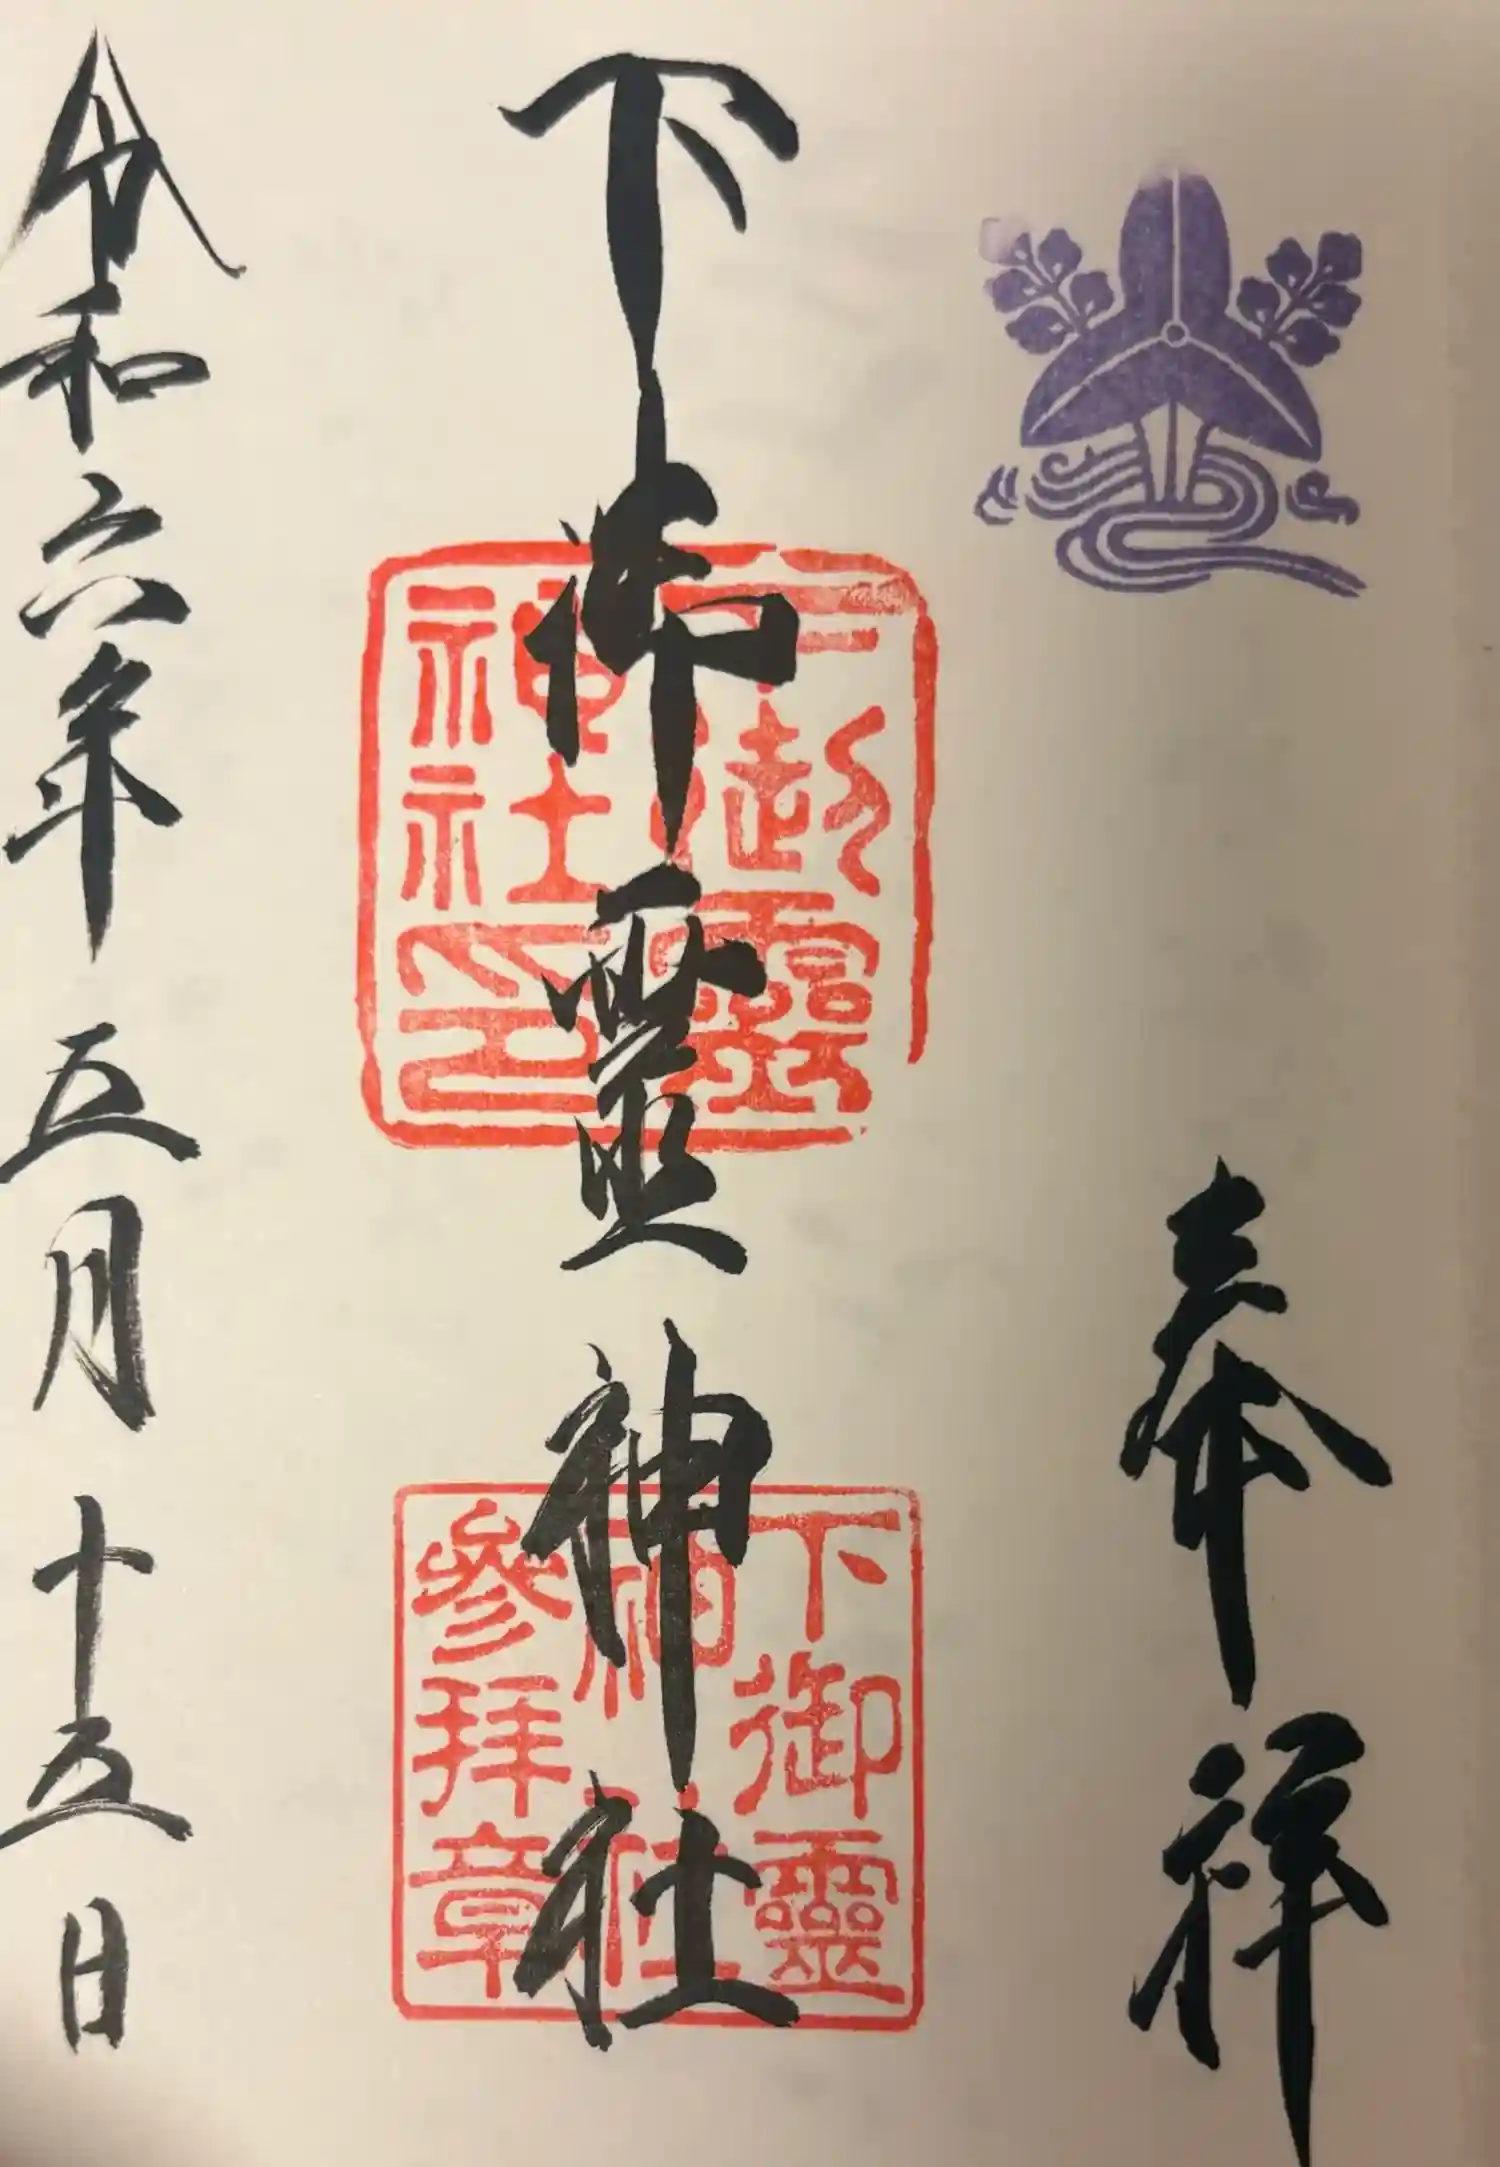 奉拝
下御靈神社
下御靈
神社印
下御靈
神社
參拝章
令和六年五月十五日